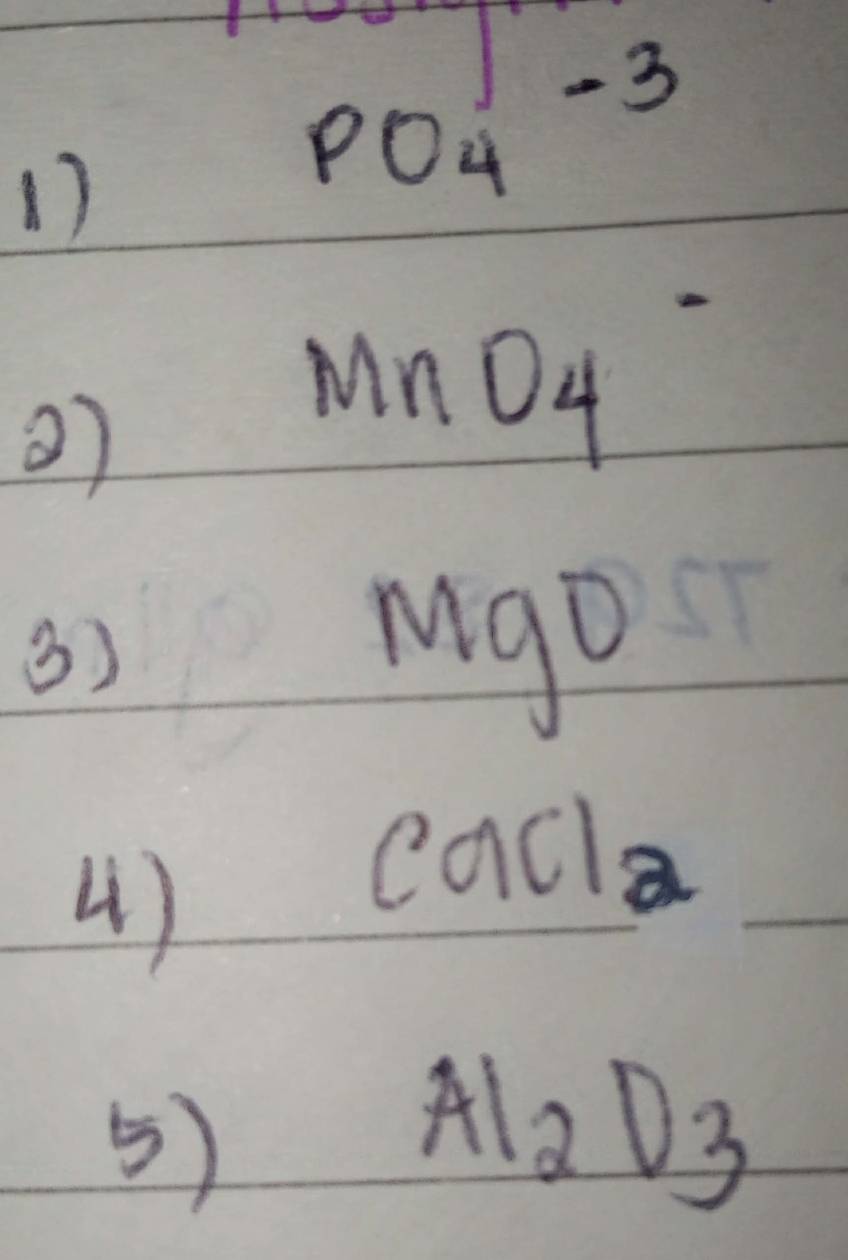 1) PO4 -3
2) MnO4 -
3) MgO
4) CaCl2
5) Al2O3